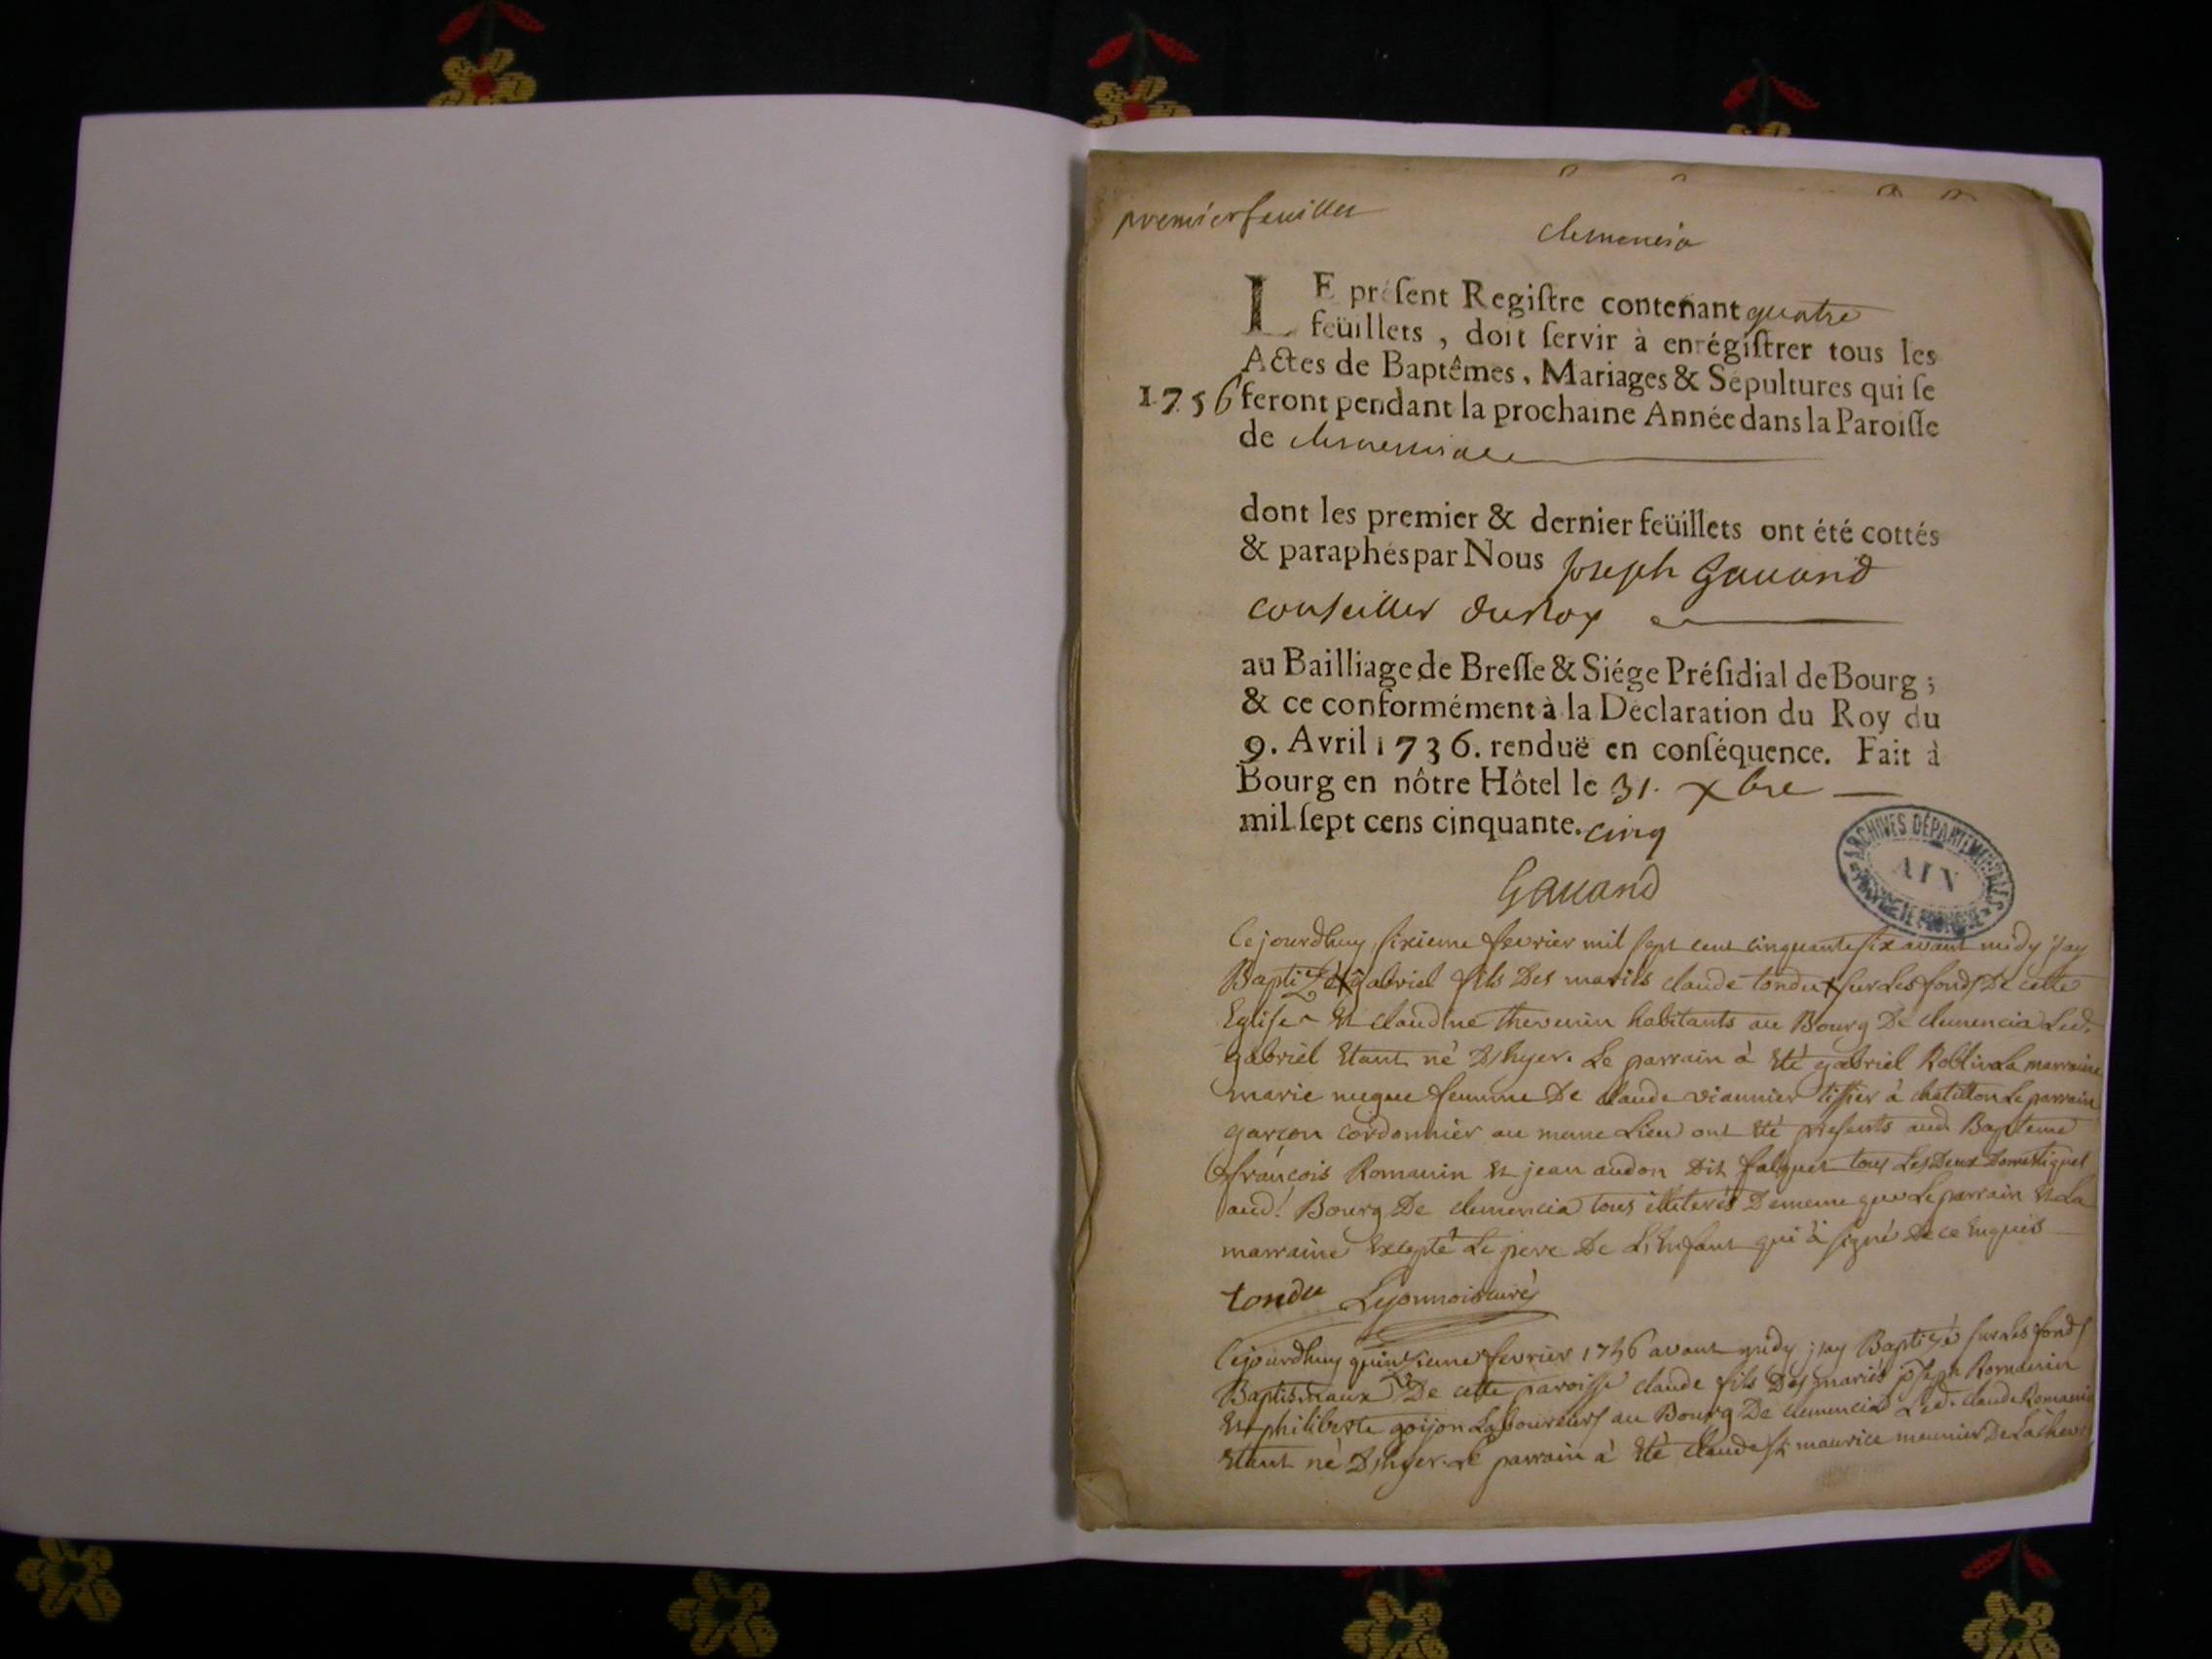 premier feuillet
clemencia
LE préſent Regiſtre contenant quatre
feüillets, doit ſervir à enrégiſtrer tous les
Actes de Baptêmes, Mariages & Sépultures qui ſe
1756 feront pendant la prochaine Année dans la Paroiſſe
de clemenciae
dont les premier & dernier feüillets ont été cottés
& paraphés par Nous Joseph Gauand
conseiller du Roy
au Bailliage de Breſſe & Siége Préſidial de Bourg ;
& ce conformément à la Déclaration du Roy du
9. Avril 1736. renduë en conſéquence. Fait à
Bourg en nôtre Hôtel le 31. xbre
mil ſept cens cinquante. cinq
ARCHIVES DÉPARTEMENTALES
AIN
Gauand
Cejourdhuy sixieme fevrier mil sept cent cinquante six avant midy jay
Baptizé gabriel fils Des mariés claude tondu sur Les fonds De cette
Eglise Et claudine thevenin habitants au Bourg De clemencia Led.
gabriel Etant né D'hyer. Le parrain à Eté gabriel Roblin La marraine
marie femme De claude viannier tissier à chatillon Le parrain
garçon cordonnier au meme Lieu ont Eté presents aud. Bapteme
françois Romanin Et jean audon Dit falquet tous Les Deux Domestiques
aud. Bourg De clemencia tous illiterés De meme que Le parrain Et La
marraine Excepté Le pere De L'Enfant qui à signé De ce Enquis
tondu Lyonnois curé
Cejourdhuy quinzieme fevrier 1756 avant midy jay Baptizé sur Les fonds
Baptismaux De cette paroisse claude fils Des mariés joseph Romanin
Et philiberte goijon Laboureurs au Bourg De clemencia Led. claude Romanin
Etant né D'hyer. Le parrain à Eté claude st maurice meunier De